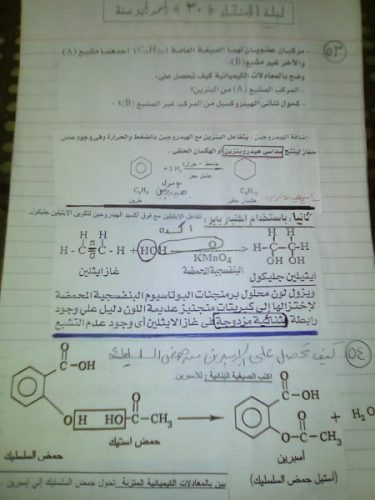 ليلة الامتحان (٣٠) أحمد أبو سنة
٥٣
- مركبان عضويان لهما الصيغة العامة (CₙH₂ₙ) أحدهما مشبع (A)
والآخر غير مشبع (B).
وضح بالمعادلات الكيميائية كيف تحصل على:
- المركب المشبع (A) من البنزين؟
- كحول ثنائي الهيدروكسيل من المركب غير المشبع (B)؟
إضافة الهيدروجين: يتفاعل البنزين مع الهيدروجين بالضغط والحرارة وفي وجود عامل
حفاز لينتج سداسي هيدروبنزين أو الهكسان الحلقي.
+ 3 H₂
ضغط - حرارة
عامل حفز
C₆H₆
C₆H₁₂
بنزين
هكسان حلقي
ثانيا: باستخدام اختبار باير: تفاعل الايثيلين مع فوق أكسيد الهيدروجين لتكوين الايثيلين جليكول.
أكسدة
H-C=C-H + HOH
KMnO₄
H-C-C-H
OH OH
البنفسجية المحمضة
غاز ايثيلين
ايثيلين جليكول
ويزول لون محلول برمنجنات البوتاسيوم البنفسجية المحمضة
لاختزالها إلى كبريتات منجنيز عديمة اللون دليل على وجود
رابطة ثنائية مزدوجة في غاز الايثيلين أي وجود عدم التشبع
٥٤
كيف تحصل على الاسبرين من حمض السلسليك
اكتب الصيغة البنائية: للأسبرين.
C-OH
O
O H
HO-C-CH₃
O
حمض السلسليك
حمض استيك
C-OH
O
O-C-CH₃
O
+ H₂O
أسبرين
(أستيل حمض السلسليك)
بين بالمعادلات الكيميائية المتزنة: تحول حمض السلسليك إلى إسبرين.